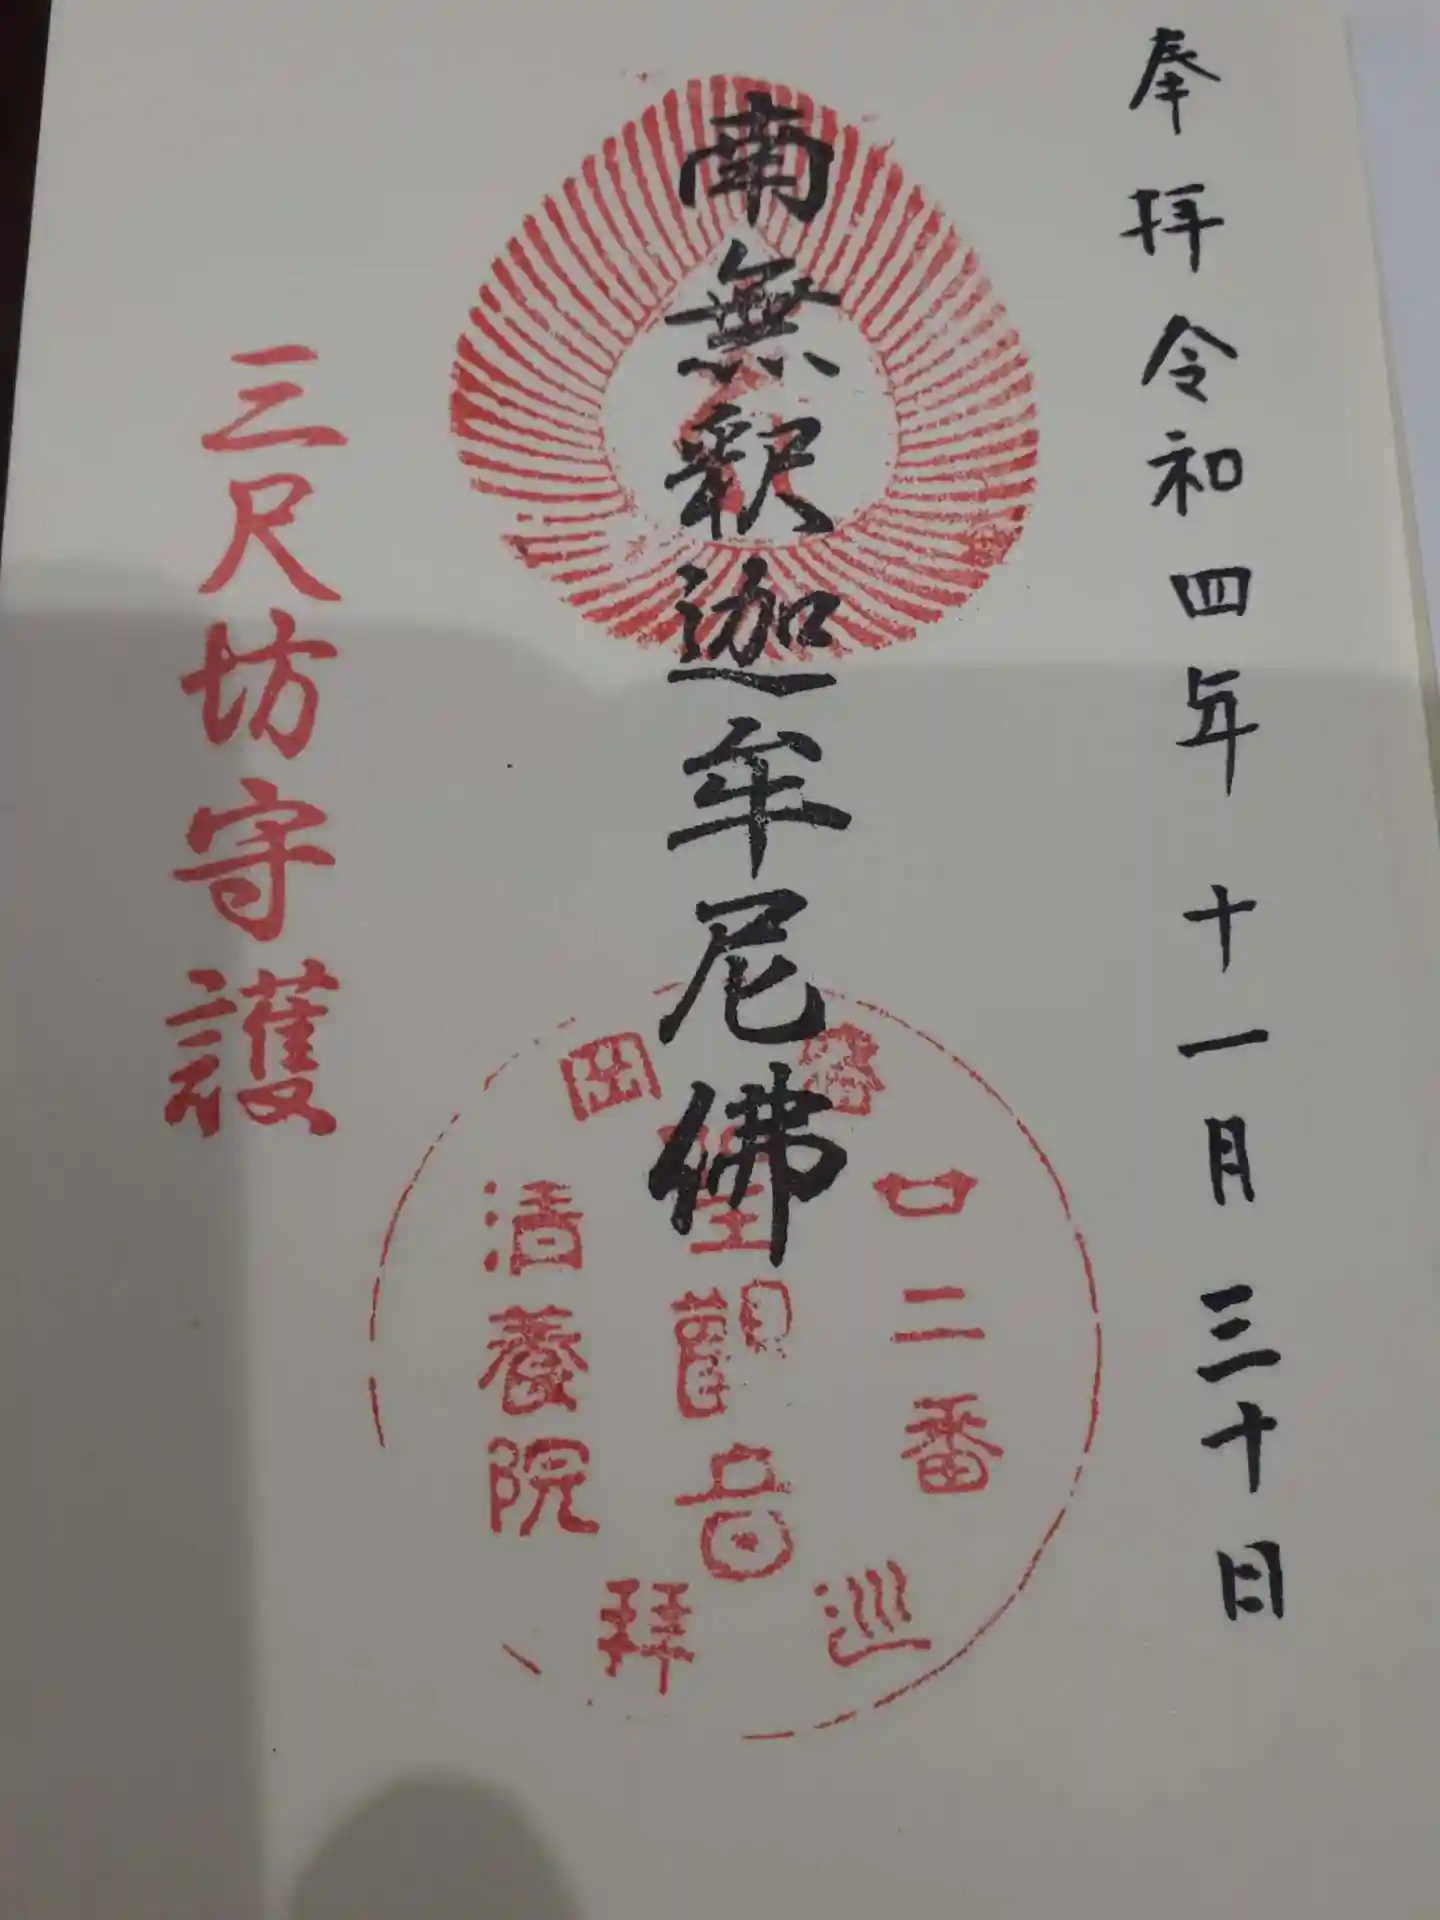 奉拝 令和四年 十一月 三十日
南無釈迦牟尼佛
三尺坊守護
廿二番
聖觀音
清養院
巡拝